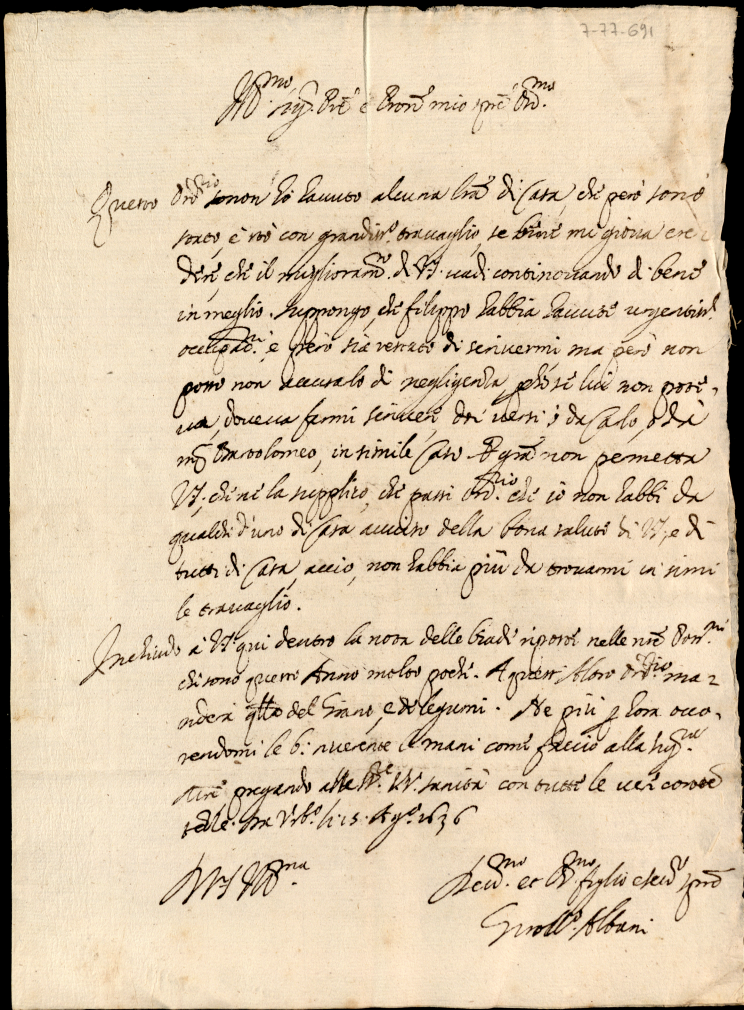 7-77-691
Ill.mo Sig.r P're e P'ron mio sem.e Oss.mo
Questo Ord.rio non hò havuto alcuna l'ra di Casa, che però sono
stato, e stò con grandis.o travaglio, se bene mi giova cre
dere, che il miglioram.to di V.S. vadi continovando di bene
in meglio. Suppongo, che filippo habbia havute urgentiss.e
occupat.ni, e però sia restato di scrivermi ma però non
posso non accusarlo di negligenza, p'che se lui non pote-
va, doveva farmi scrivere, due versi ò da Carlo, ò da
m. Bartolomeo, in simile Caso. P gra' non permetta
V.S., che ne la supplico, che passi Ord.rio che io non habbi da
qualch'd'uno di Casa avviso della bona salute di V.S., e di
tutti di Casa, acciò, non habbia più da trovarmi in simi
le travaglio.
Inchiudo à V.S. qui dentro la nota delle biade riposte nelle n're
che sono questo Anno molto poche. A quest. Altro Ord.rio ma-
nderà q'llo del Grano, e de legumi. Ne più p hora occo-
rendomi le b. riverente le mani come faccio alla Sig.ra
M're pregando alle SS.rie VV. sanità con tutte le vere
zze. Da Urb.o li 15. Ag.o 1636
Di V.S. Ill.ma
Dev.mo et Obl.mo figlio e ser.re
Girol.o Albani